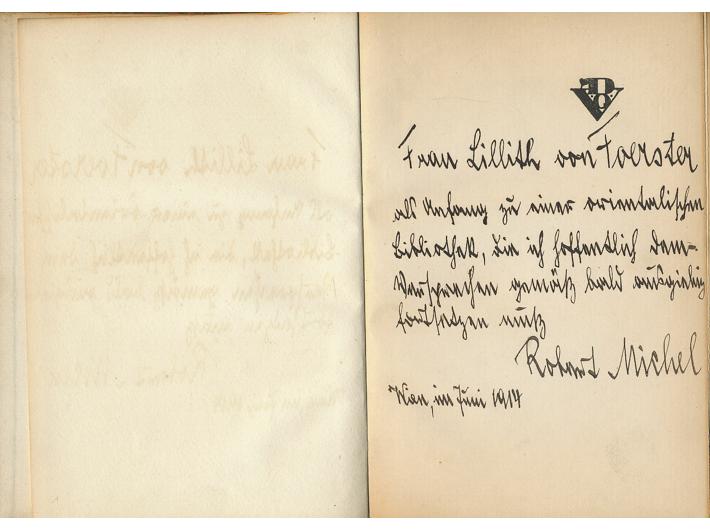 Frau Lillith von Foerster
als Anfang zu einer orientalischen
Bibliothek, die ich hoffentlich dem
Versprechen gemäß bald ausgiebig
fortsetzen muß
Robert Michel
Wien, im Juni 1914